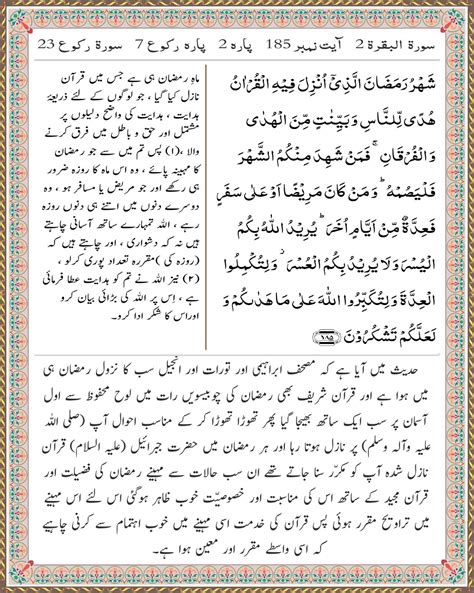 سورۃ البقرۃ 2 آیت نمبر 185 پارہ 2 پارہ رکوع 7 سورۃ رکوع 23
شَهْرُ رَمَضَانَ الَّذِيْٓ اُنْزِلَ فِيْهِ الْقُرْاٰنُ
هُدًى لِّلنَّاسِ وَبَيِّنٰتٍ مِّنَ الْهُدٰى
وَالْفُرْقَانِ ۚ فَمَنْ شَهِدَ مِنْكُمُ الشَّهْرَ
فَلْيَصُمْهُ ؕ وَمَنْ كَانَ مَرِيْضًا اَوْ عَلٰى سَفَرٍ
فَعِدَّةٌ مِّنْ اَيَّامٍ اُخَرَ ؕ يُرِيْدُ اللّٰهُ بِكُمُ
الْيُسْرَ وَلَا يُرِيْدُ بِكُمُ الْعُسْرَ ۫ وَلِتُكْمِلُوا
الْعِدَّةَ وَلِتُكَبِّرُوا اللّٰهَ عَلٰى مَا هَدٰىكُمْ وَ
لَعَلَّكُمْ تَشْكُرُوْنَ ۱۸۵
ماہِ رمضان ہی ہے جس میں قرآن
نازل کیا گیا ، جو لوگوں کے لئے ذریعۂ
ہدایت ، ہدایت کی واضح دلیلوں پر
مشتمل اور حق و باطل میں فرق کرنے
والا ،(۱) پس تم میں سے جو رمضان
کا مہینہ پائے ، وہ اس ماہ کا روزہ ضرور
ہی رکھے اور جو مریض یا مسافر ہو ، وہ
دوسرے دنوں میں اتنے ہی دنوں روزہ
رکھ لے ، اللہ تمہارے ساتھ آسانی چاہتے
ہیں نہ کہ دشواری ، اور چاہتے ہیں کہ
(روزہ کی )مقررہ تعداد پوری کرلو ،
(۲) نیز اللہ نے تم کو ہدایت عطا فرمائی
ہے ، اِس پر اللہ کی بڑائی بیان کرو
اور اس کا شکر ادا کرو ۔
حدیث میں آیا ہے کہ مصحف ابراہیمی اور تورات اور انجیل سب کا نزول رمضان ہی
میں ہوا ہے اور قرآن شریف بھی رمضان کی چوبیسویں رات میں لوح محفوظ سے اول
آسمان پر سب ایک ساتھ بھیجا گیا پھر تھوڑا تھوڑا کر کے مناسب احوال آپ (صلی اللہ
علیہ وآلہ وسلم) پر نازل ہوتا رہا اور ہر رمضان میں حضرت جبرائیل (علیہ السلام) قرآن
نازل شدہ آپ کو مکرّر سنا جاتے تھے ان سب حالات سے مہینے رمضان کی فضیلت اور
قرآن مجید کے ساتھ اس کی مناسبت اور خصوصیّت خوب ظاہر ہوگئی اس لئے اس مہینے
میں تراویح مقرر ہوئی پس قرآن کی خدمت اسی مہینے میں خوب اہتمام سے کرنی چاہیے
کہ اسی واسطے مقرر اور معین ہوا ہے ۔